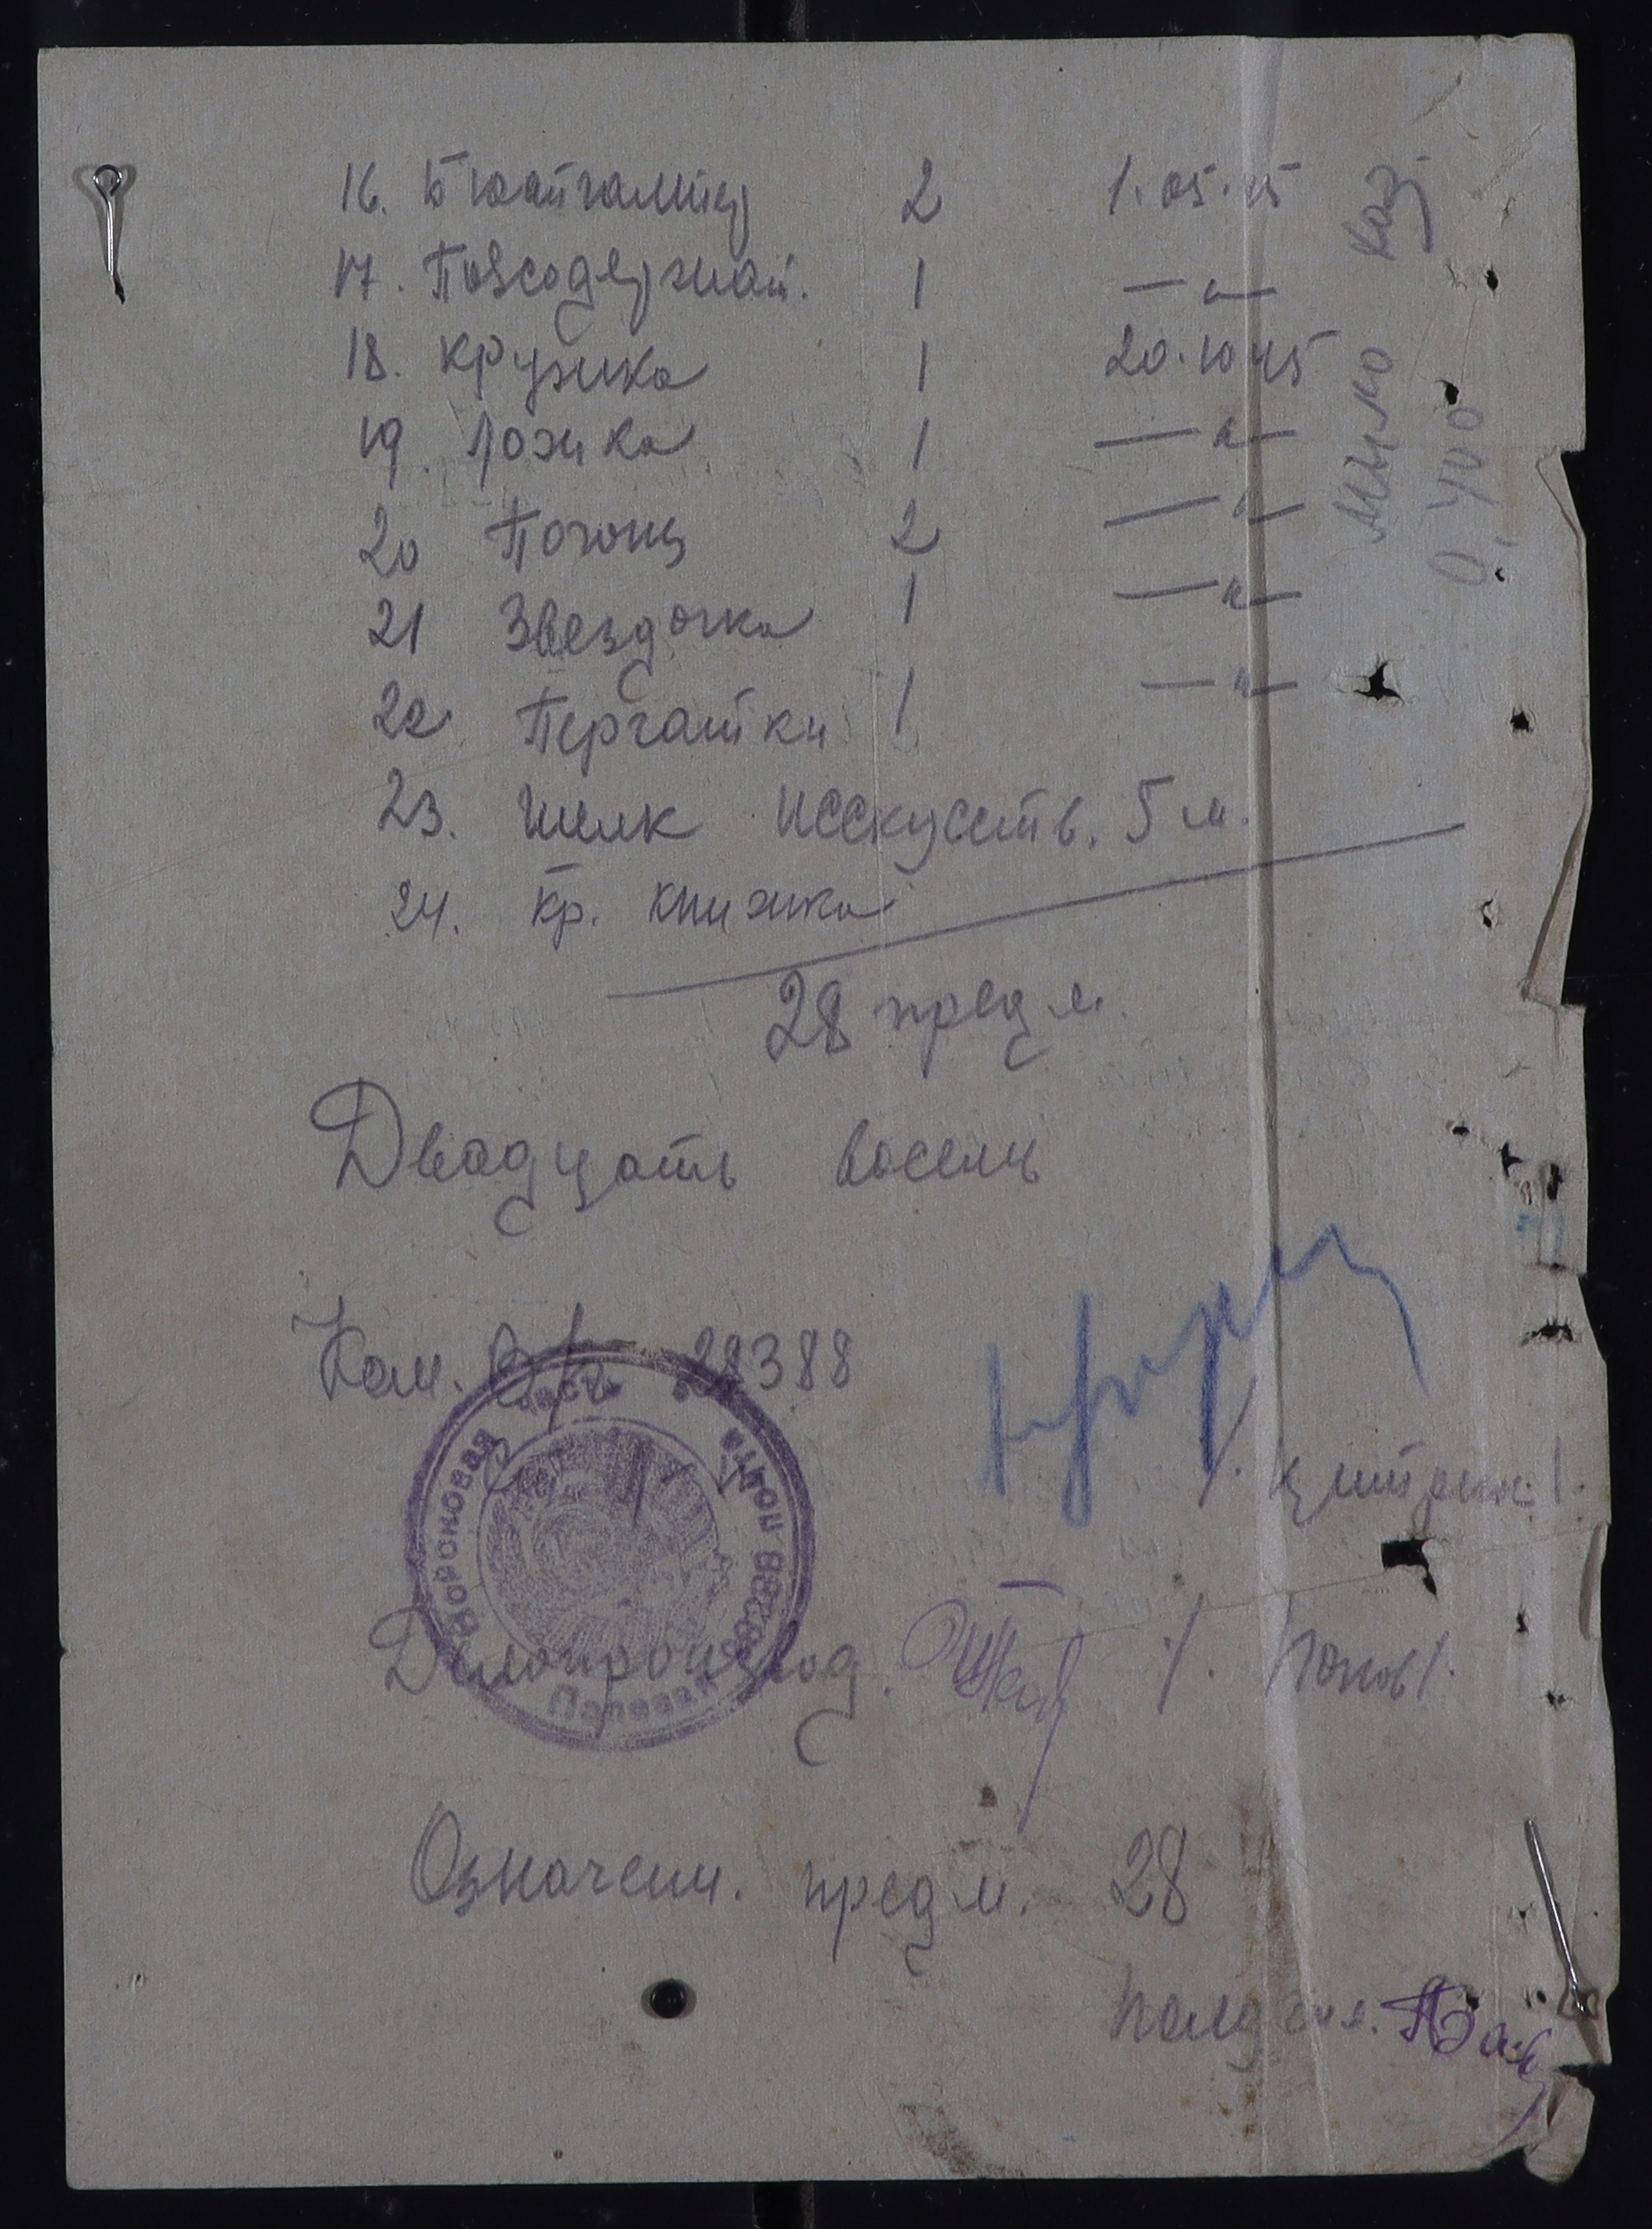 16. Бюстгалтер 2 1.05.45
17. Поясодержат. 1 — " —
18. Кружка 1 20.10.45
19. Ложка 1 — " —
20 Погоны 2 — " —
21 Звездочка 1 — " —
22 Перчатки 1 — " —
23. Шелк исскуств. 5 м.
24. Кр. книжка
28 предм.
Двадцать восемь
Ком. В/ч 28388
Делопроизвод. /. Попов /.
Означенн. предм. 28
Получил.
мыло
0,400
Воронковая часть
Полевая почта